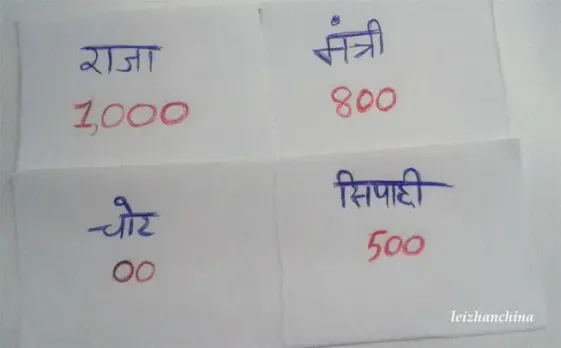 राजा
1,000
मंत्री
800
चोर
00
सिपाही
500
leizhanchina